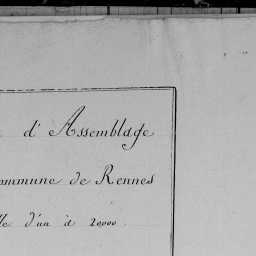 d'Assemblage
ommune de Rennes
d'un à 20000